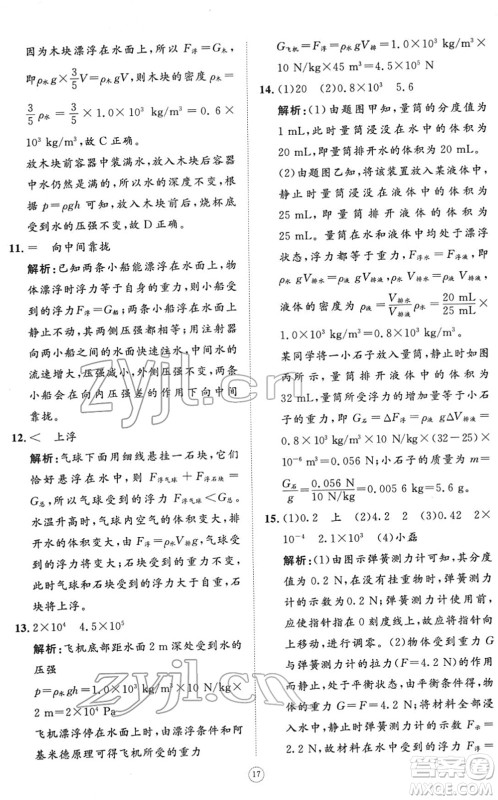 因为木块漂浮在水面上，所以 F浮＝G木，
即ρ水g×3/5V＝ρ木gV，则木块的密度 ρ木＝
3/5ρ水＝3/5×1.0×10³ kg/m³＝0.6×
10³ kg/m³，故 C 正确。
放木块前容器中装满水，放入木块后容器
中水仍然是满的，所以水的深度不变，根
据 p＝ρgh 可知，放入木块前、后，烧杯底
受到水的压强不变，故 D 正确。
11.＝ 向中间靠拢
解析：已知两条小船能漂浮在水面上，物
体漂浮时浮力等于自身的重力，则小船受
到的浮力F浮＝G船；两条小船在水面上
静止不动，两侧压强都相等，用注射器
向两船之间的水面快速注水，中间水的
流速增大，压强变小，两条小船会在外
侧大压强的作用下向中间
靠拢。
12.＜ 上浮
解析：气球下面用细线悬挂一石块，它们
恰好悬浮在水中，则 F浮气球＋F浮石块＝
G总，所以，气球受到的浮力 F浮气球＜G总。
水温升高一些，气球内空气的体积变大，
则气球的体积变大，排开水的体积变大，
气球受到的浮力变大，气球和石块受到
的总浮力变大，而气球和石块的重力不
变，总浮力将大于总重力，所以，气球和石
块将上浮。
13.2×10⁴ 4.5×10⁵
解析：飞机底部距水面 2 m 深处受到水的
压强
p＝ρ水gh＝1.0×10³ kg/m³×10 N/kg×
2 m＝2×10⁴ Pa
飞机停浮在水面上时，由漂浮条件和阿
基米德原理可得飞机所受的重力
G飞机＝F浮＝ρ水gV排＝1.0×10³ kg/m³×
10 N/kg×45 m³＝4.5×10⁵ N
14.(1)20 (2)0.8×10³ 5.6
解析：(1)由题图甲知，量筒的分度值为
1 mL，此时量筒浸没在水中的体积为
20 mL，即量筒排开水的体积为 20 mL。
(2)由题图乙知，将该装置放入某液体中，
静止时量筒浸没在液体中的体积为
25 mL，则量筒排开液体的体积为
25 mL。量筒在水和液体中均处于漂浮
状态，浮力不变，则 F浮水＝F浮液，ρ水gV排水＝ρ液gV排液，
液体的密度为ρ液＝V排水/V排液 ρ水＝20 mL/25 mL×
1.0×10³ kg/m³＝0.8×10³ kg/m³。
某同学将一小石子放入量筒，量筒静止
时液面与 32 mL 刻度线相平，则该小石
子的重力，即 G石＝ΔF浮＝ρ液gΔV排＝
0.8×10³ kg/m³×10 N/kg×(32−25)×
10⁻⁶ m³＝0.056 N，小石子的质量 m＝
G石/g＝0.056 N/10 N/kg＝0.005 6 kg＝5.6 g。
15.(1)0.2 上 (2)4.2 2 (3)0.42
(4)2 1×10³ (5)小磊
解析：(1)由图示弹簧测力计可知，其分度
值为 0.2 N；弹簧测力计使用前指针指在
0刻度线下方，应将弹簧测力计的指针向
上移动，进行调零。(2)物体的重力与弹
簧测力计的拉力是一对平衡力，由平衡
条件可知，重力 G＝F＝4.2 N；将材料全部
浸入水中，弹簧测力计的示数 F示＝
2.2 N，故材料在水中所受的浮力 F浮＝
17
zyjl.cn
zyjl.cn
答案圈
MXQE.COM